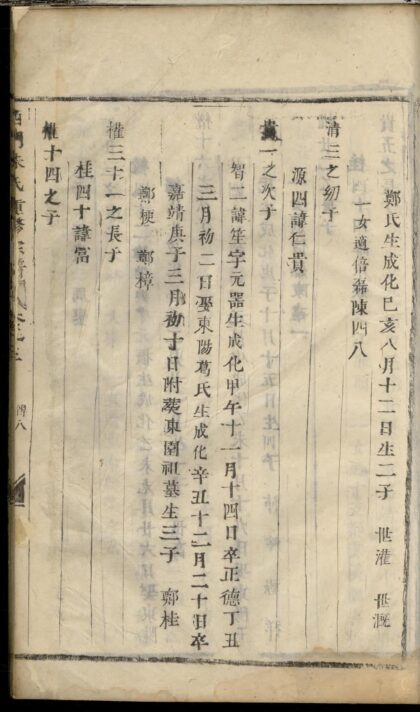 鄭氏生成化己亥八月十二日生二子　世灌　世溉
一女適倍磊陳四八
清三之幼子
源四諱仁貴
貴一之次子
智二諱笙字元器生成化甲午十一月十四日卒正德丁丑
三月初二日娶東陽葛氏生成化辛丑十二月二十日卒
嘉靖庚子三月初十日附葵東園祖墓生三子　鄭桂
鄭梗　鄭樟
權三十一之長子
桂四十諱富
權十四之子
四八